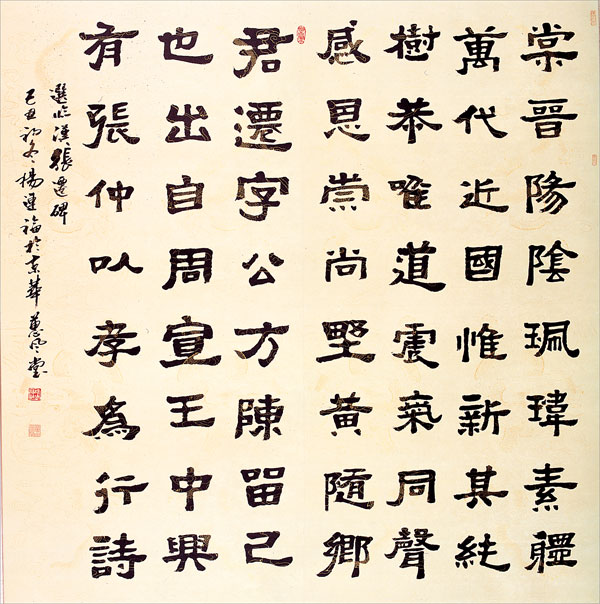 棠晉陽陰珮瑋素疆
萬代近國惟新其純
樹恭唯道震氣同聲
感恩崇尚野黃隨鄉
君遷字公方陳留己
也出自周宣王中興
有張仲以孝為行詩
選臨漢張遷碑
己丑初冬楊運福於京華蕙風堂